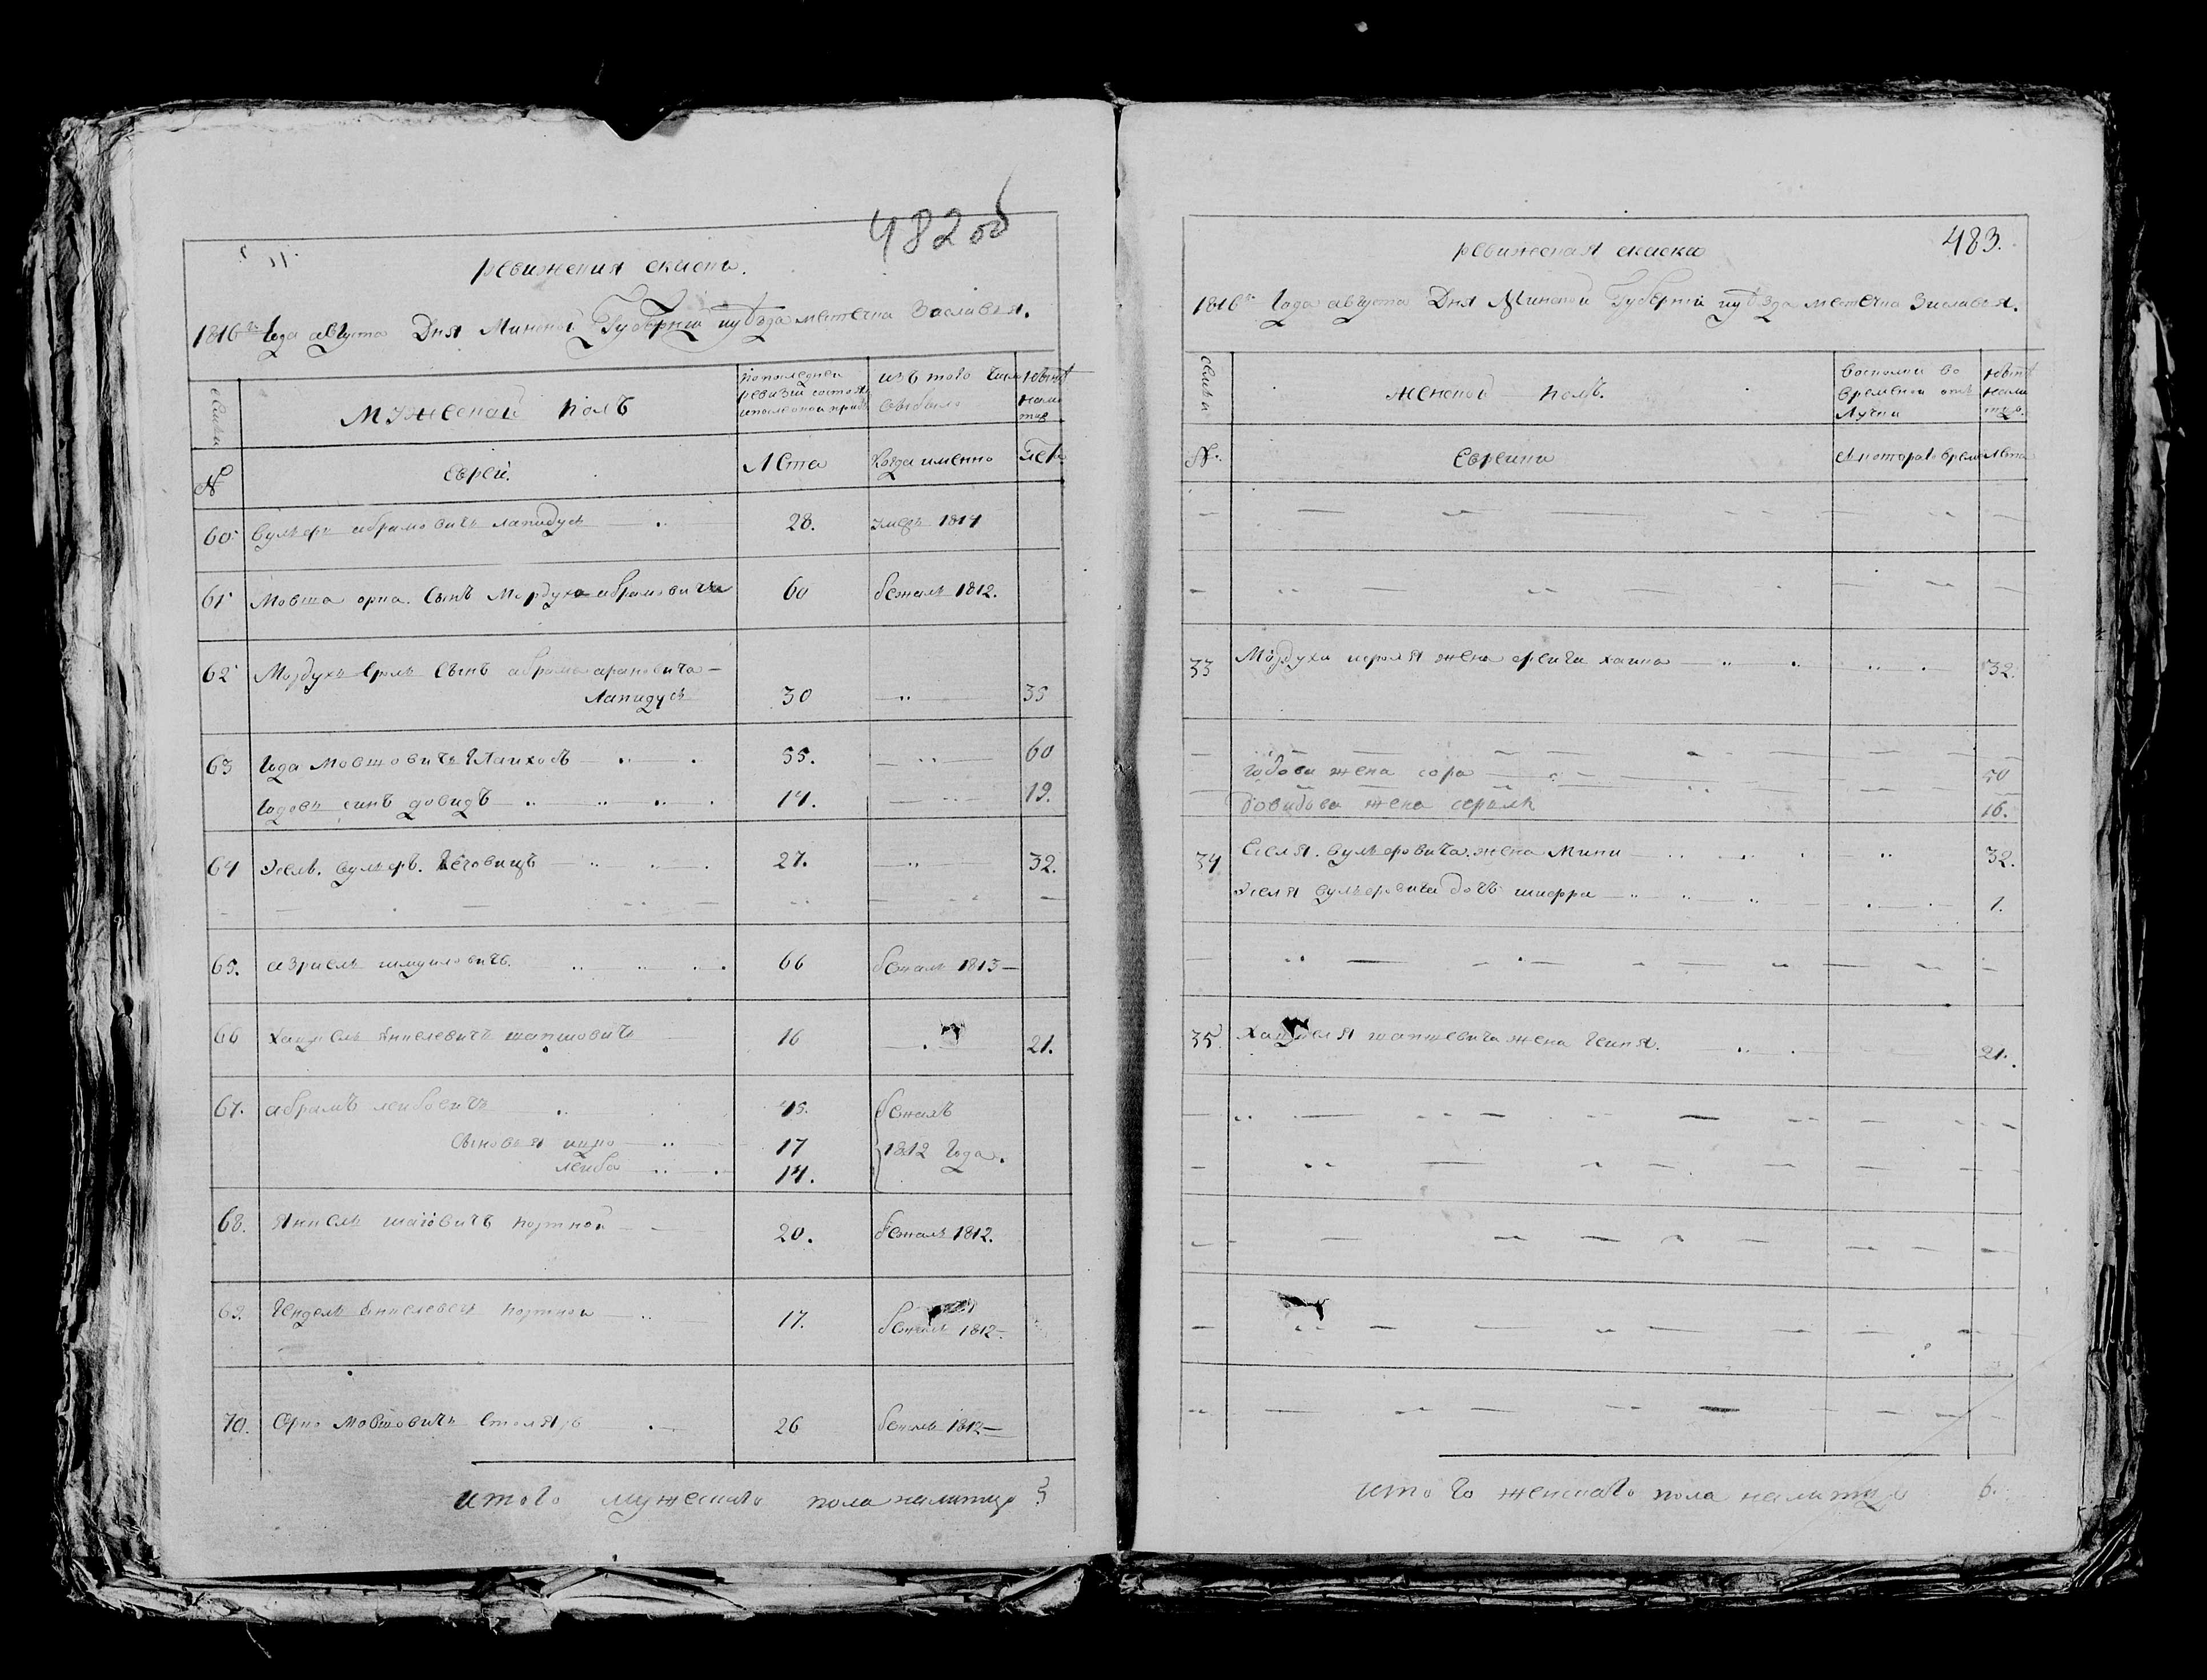 482 об
ревижения скаски.
1816го Года августа Дня Минской Губернии и уѣзда местечка Заславья.
семьи
мужеской полъ
по последней ревизии состояло
изъ того числа выбыло
ныне налицо
№
еврей.
Лета
Когда именно
Лета
60 Вульфъ абрамовичъ лапидусъ 28. умеръ 1814
61 Мовша орка. Сынъ Мордуха абрамовича 60 бежалъ 1812.
62 Мордухъ Сроль Сынъ абрама арановича
Лапидусъ 30 35
63 Года Мовшовичъ 55. 60
Годовъ синъ довидъ 14. 19.
64 Эселъ. вульфъ. 27. 32.
65. азриель шмуиловичъ. 66 бежалъ 1813
66 янкелевичъ шапшовичъ 16 21.
67. абрамъ лейбовичъ 45. бежалъ
Сыновья ицко 17 1812 Года.
лейба 14.
68. янкель шаіовичъ портной 20. бежалъ 1812.
69. Гендель янкелевич портной 17. бежалъ 1812
70. Орко Мовшовичъ Столяръ 26 бежалъ 1812
итого мужескаго пола налицо 3
483.
ревижская скаска
1816го Года августа Дня Минской Губерніи и уѣзда местечка Заславья.
семьи
женской полъ.
во временной отлучки
ныне налицо
№
евреики
с котораго время
Лета
33 Мордуха исроля жена фейга хаина 32.
годова жена сора 50
довидова жена серолк 16.
34 Еселя. вульфовича. жена Мини 32.
Эселя вульфовича дочъ шифра 1.
35. шапшевича жена Геня. 21.
итого женскаго пола налицо 6.